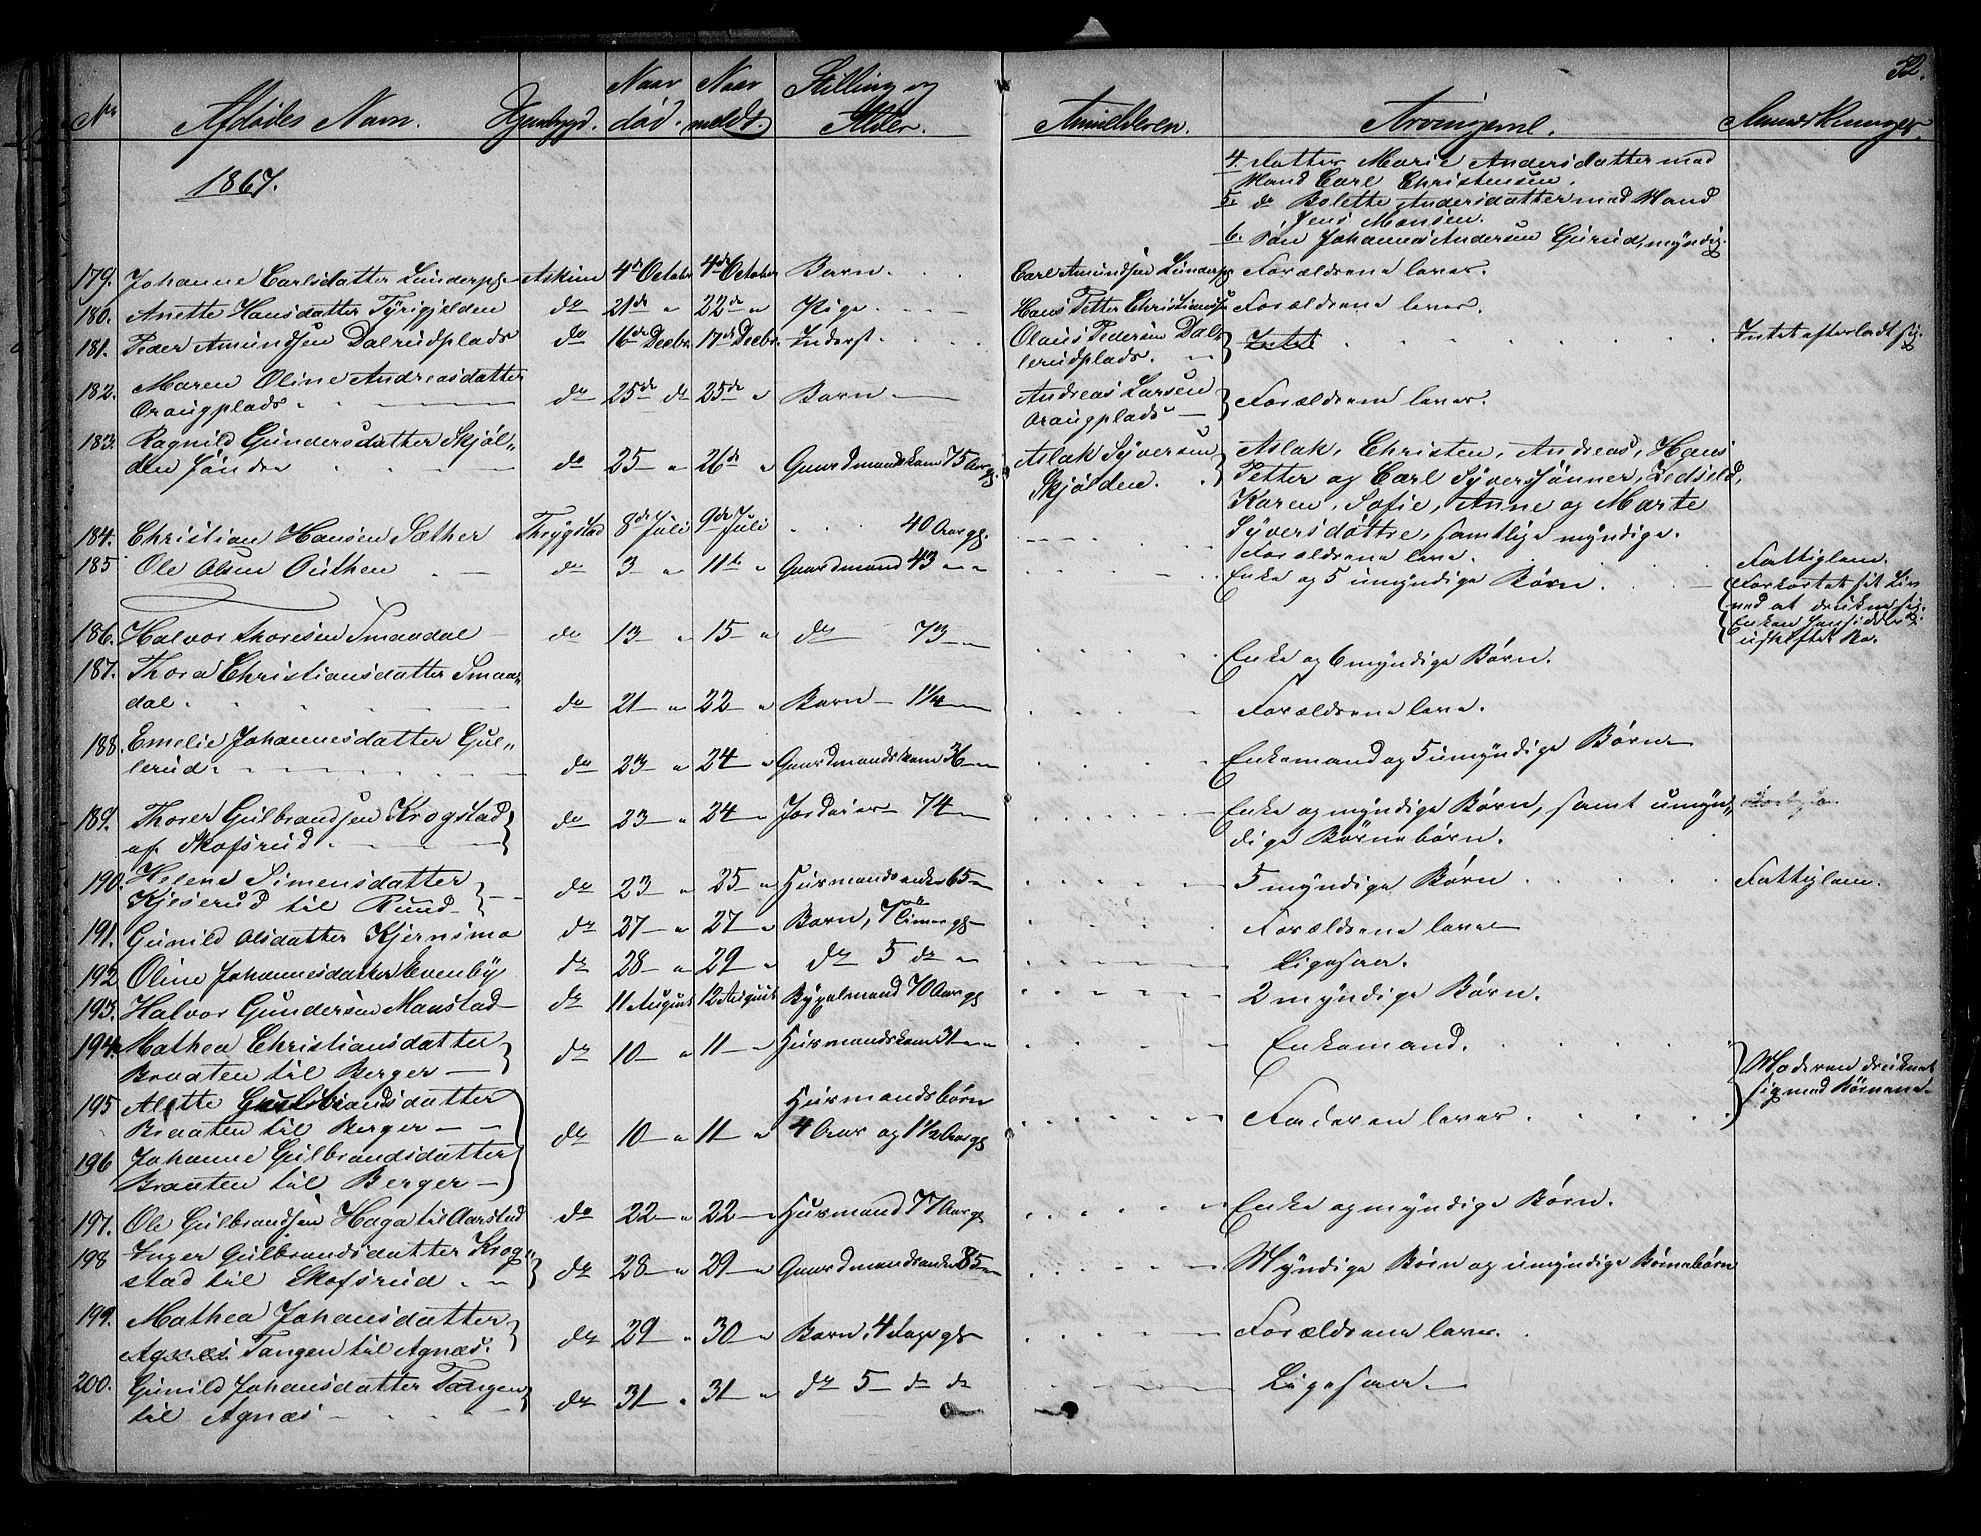 52.
No Afdødes Navn. Hjembygd. Naar død. Naar meldt. Stilling og Alder. Anmelderen. Arvingerne. Anmærkninger.
1867.
4. Datter Marie Andersdatter med
Mand Carl Christensen.
5. do Bolette Andersdatter med Mand
Jens Monsen.
6. Søn Johannes Andersen Gurud, myndig.
179. Johanne Carlsdatter Askim 4de October 4de October Barn. Carl Amundsen Forældrene lever.
180. Anette Hansdatter Tyrigjelden do 21de " 22de " Pige. Hans Petter Christiansen Forældrene lever.
181. Peder Amundsen Dalrudplads do 16de Decbr. 17de Decbr. Inderst. Olaus Pedersen Dal-
lerudplads. Intet Intet efterladt sig.
182. Maren Oline Andreasdatter
Oraugplads do 25de do 25de " Barn Andreas Larsen
Oraugplads Forældrene lever.
183. Ragnild Gundersdatter Skjøl„
den Søndre do 25 " 26de " Gaardmandskone 75 Aar gl. Aslak Syversen
Skjølden. Aslak, Christen, Andreas, Hans
Petter og Carl Syverssønner,
Karen, Sofie, Anne og Marte
Syversdøttre, samtlige myndige.
184. Christian Hansen Sæther Thrygstad 8de Juli 9de Juli 40 Aar gl. Forældrene leve. Fattiglem.
185 Ole Olsen Outhen do 3 " 11te " Gaardmand 43 " " Enke og 5 umyndige Børn. Forkortet sit Liv
ved at drukne sig.
Enken sidder i
uskiftet Bo.
186. Halvor Thoresen Smaadal do 13 " 15 " do 73 " Enke og 6 myndige Børn.
187. Thora Christiansdatter Smaa„
dal. do 21 " 22 " Barn 1 1/4 Forældrene leve.
188. Emelie Johannesdatter Gul„
lerud. do 23 " 24 " Gaardmandskone 36 " Enkemand og 5 umyndige Børn
189. Thorer Gulbrandsen Krogstad
af Skofsrud. do 23 " 24 " Jordeier 74 Enke og myndige Børn, samt umyn„
dige Børnebørn.
190. Helene Simensdatter
Kjeserud til Rund do 23 " 25 " Husmandsenke 65 5 myndige Børn Fattiglem.
191. Gunild Olsdatter Kjernsmo do 27 " 27 " Barn, 7 Timer gl. Forældrene lever
192 Oline Johannesdatter Evenby do 28 " 29 " do 5 do " Ligesaa.
193. Halvor Gundersen Manstad do 11 August 12 August Bygselmand 70 Aar gl 2 myndige Børn.
194. Mathea Christiansdatter
Braaten til Berger do 10 " 11 " Husmandskone 31 " Enkemand. Moderen druknet
sig med Børnene.
195 Alette Gulbrandsdatter
Braaten til Berger
196 Johanne Gulbrandsdatter
Braaten til Berger do 10 " 11 " Husmandsbørn
4 Aar og 1 1/2 Aar gl Faderen lever.
197. Ole Gulbrandsen Haga til Aarstad do 22 " 22 " Husmand 77 Aar gl Enke og myndige Børn.
198 Inger Gulbrandsdatter Krog„
stad til Skofsrud do 28 " 29 " Gaardmandsenke 85 Myndige Børn og umyndige Børnebørn
199. Mathea Johansdatter
Agnæs Tangen til Agnæs. do 29 " 30 " Barn, 4 Dage gl Forældrene lever.
200. Gunild Johansdatter Tangen
til Agnæs do 31 " 31 " do 5 do do Ligesaa.